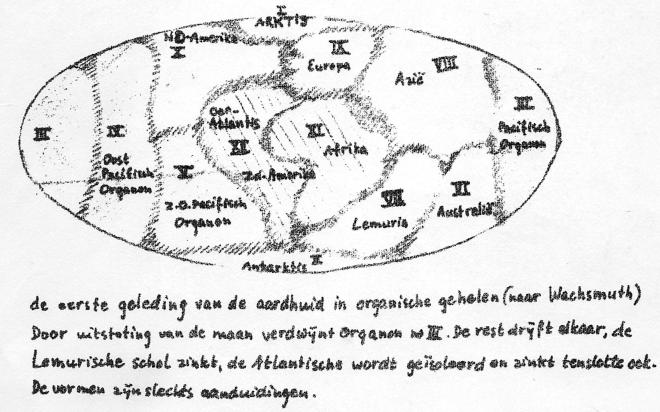 I
ARKTIS
NO-Amerika
X
IX
Europa
VIII
Azië
III
IV
Oost
Pacifisch
Organon
Oer-
Atlantis
XII
Zd-Amerika
XI
Afrika
III
Pacifisch
Organon
V
Z.O. Pacifisch
Organon
VII
Lemuria
VI
Australië
Antarktis II
de eerste geleding van de aardhuid in organische gehelen (naar Wachsmuth)
Door uitstoting van de maan verdwijnt Organon no III. De rest drijft elkaar, de
Lemurische schol zinkt, de Atlantische wordt geïsoleerd en zinkt tenslotte ook.
De vormen zijn slechts aanduidingen.